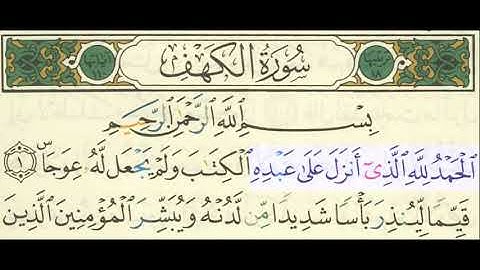 سُورَةُ الكَهْفِ
بِسْمِ اللَّهِ الرَّحْمَٰنِ الرَّحِيمِ
الْحَمْدُ لِلَّهِ الَّذِىٓ أَنزَلَ عَلَىٰ عَبْدِهِ الْكِتَٰبَ وَلَمْ يَجْعَل لَّهُۥ عِوَجَاۜ ١
قَيِّمًا لِّيُنذِرَ بَأْسًا شَدِيدًا مِّن لَّدُنْهُ وَيُبَشِّرَ الْمُؤْمِنِينَ الَّذِينَ